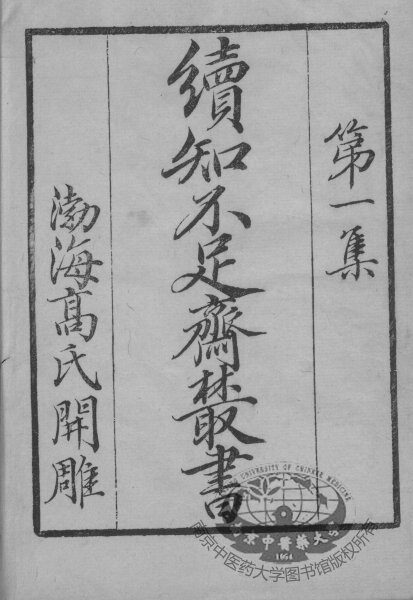 第一集
續知不足齋叢書
渤海高氏開雕
UNIVERSITY OF CHINESE MEDICINE
南京中醫藥大學
1954
南京中医药大学图书馆版权所有